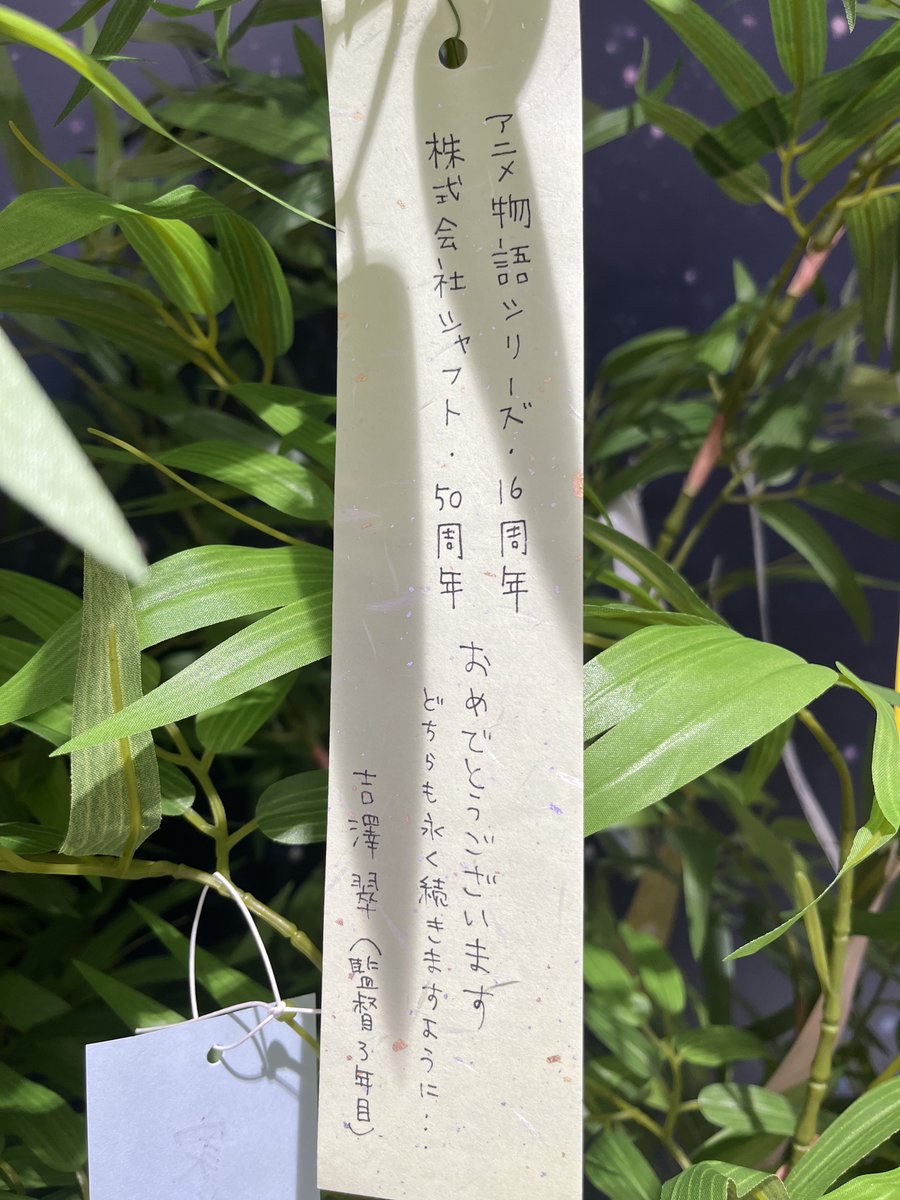 アニメ物語シリーズ・16周年
株式会社シャフト・50周年
おめでとうございます
どちらも永く続きますように・・・
吉澤翠(監督3年目)